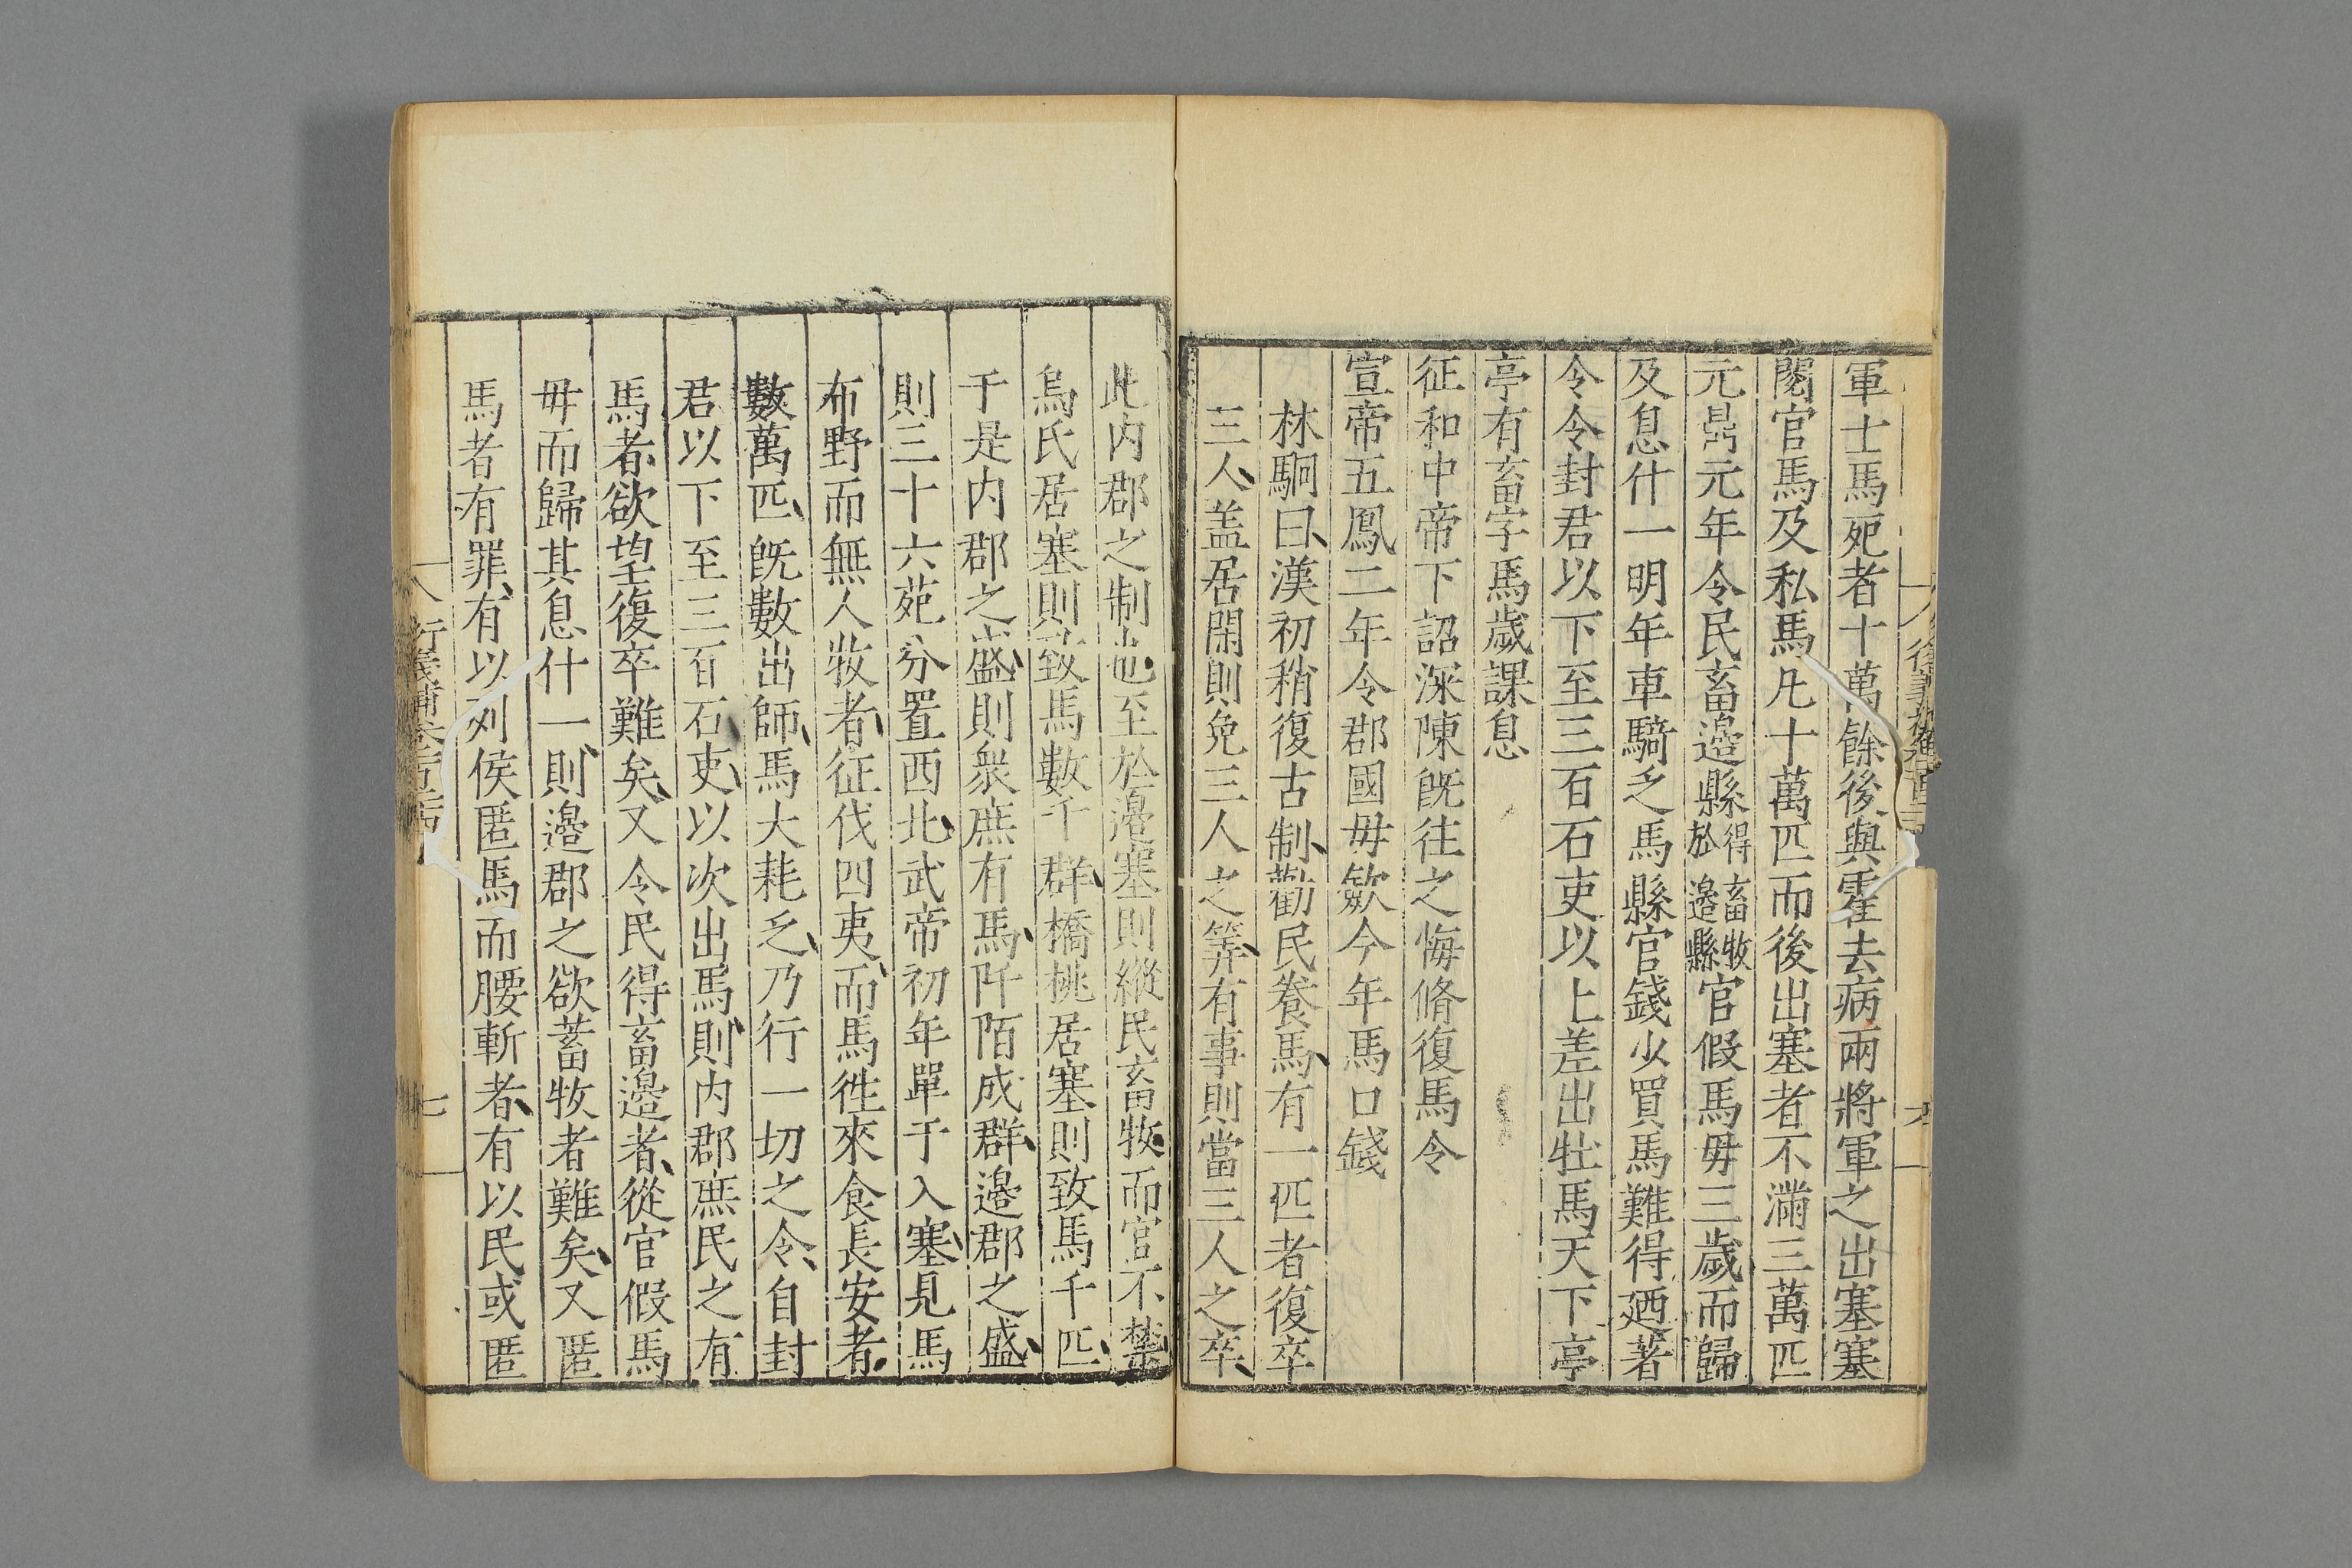 軍士馬死者十萬餘後與霍去病兩將軍之出塞塞
閱官馬及私馬凡十萬匹而後出塞者不滿三萬匹
元鼎元年令民畜邊縣得畜牧於邊縣官假馬毋三歲而歸
及息什一明年車騎乏馬縣官錢少買馬難得廼著
令令封君以下至三百石吏以上差出牡馬天下亭
亭有畜字馬歲課息
征和中帝下詔深陳旣往之悔脩復馬令
宣帝五鳳二年令郡國毋歛今年馬口錢
林駉曰漢初稍復古制勸民養馬有一匹者復卒
三人盖居閑則免三人之筭有事則當三人之卒
此内郡之制也至於邊塞則縱民畜牧而官不禁
烏氏居塞則致馬數千群橋桃居塞則致馬千匹
于是内郡之盛則衆庶有馬阡陌成群邊郡之盛
則三十六苑分置西北武帝初年單于入塞見馬
布野而無人牧者征伐四夷而馬徃來食長安者
數萬匹旣數出師馬大耗乏乃行一切之令自封
君以下至三百石吏以次出馬則内郡庶民之有
馬者欲望復卒難矣又令民得畜邊者從官假馬
毋而歸其息什一則邊郡之欲蓄牧者難矣又匿
馬者有罪有以列侯匿馬而腰斬者有以民或匿
衍義補卷 七